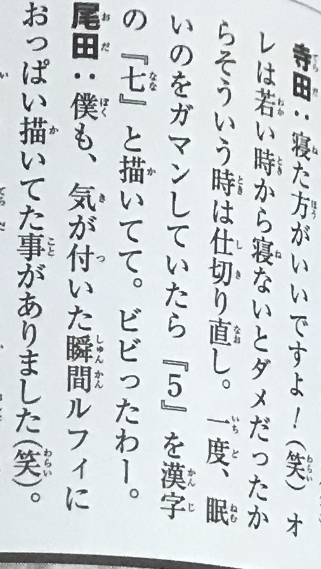 寺田：寝た方がいいですよ！（笑）オ
レは若い時から寝ないとダメだったか
らそういう時は仕切り直し。一度、眠
いのをガマンしていたら『5』を漢字
の『七』と描いてて。ビビったわー。
尾田：僕も、気が付いた瞬間ルフィに
おっぱい描いてた事がありました（笑）。